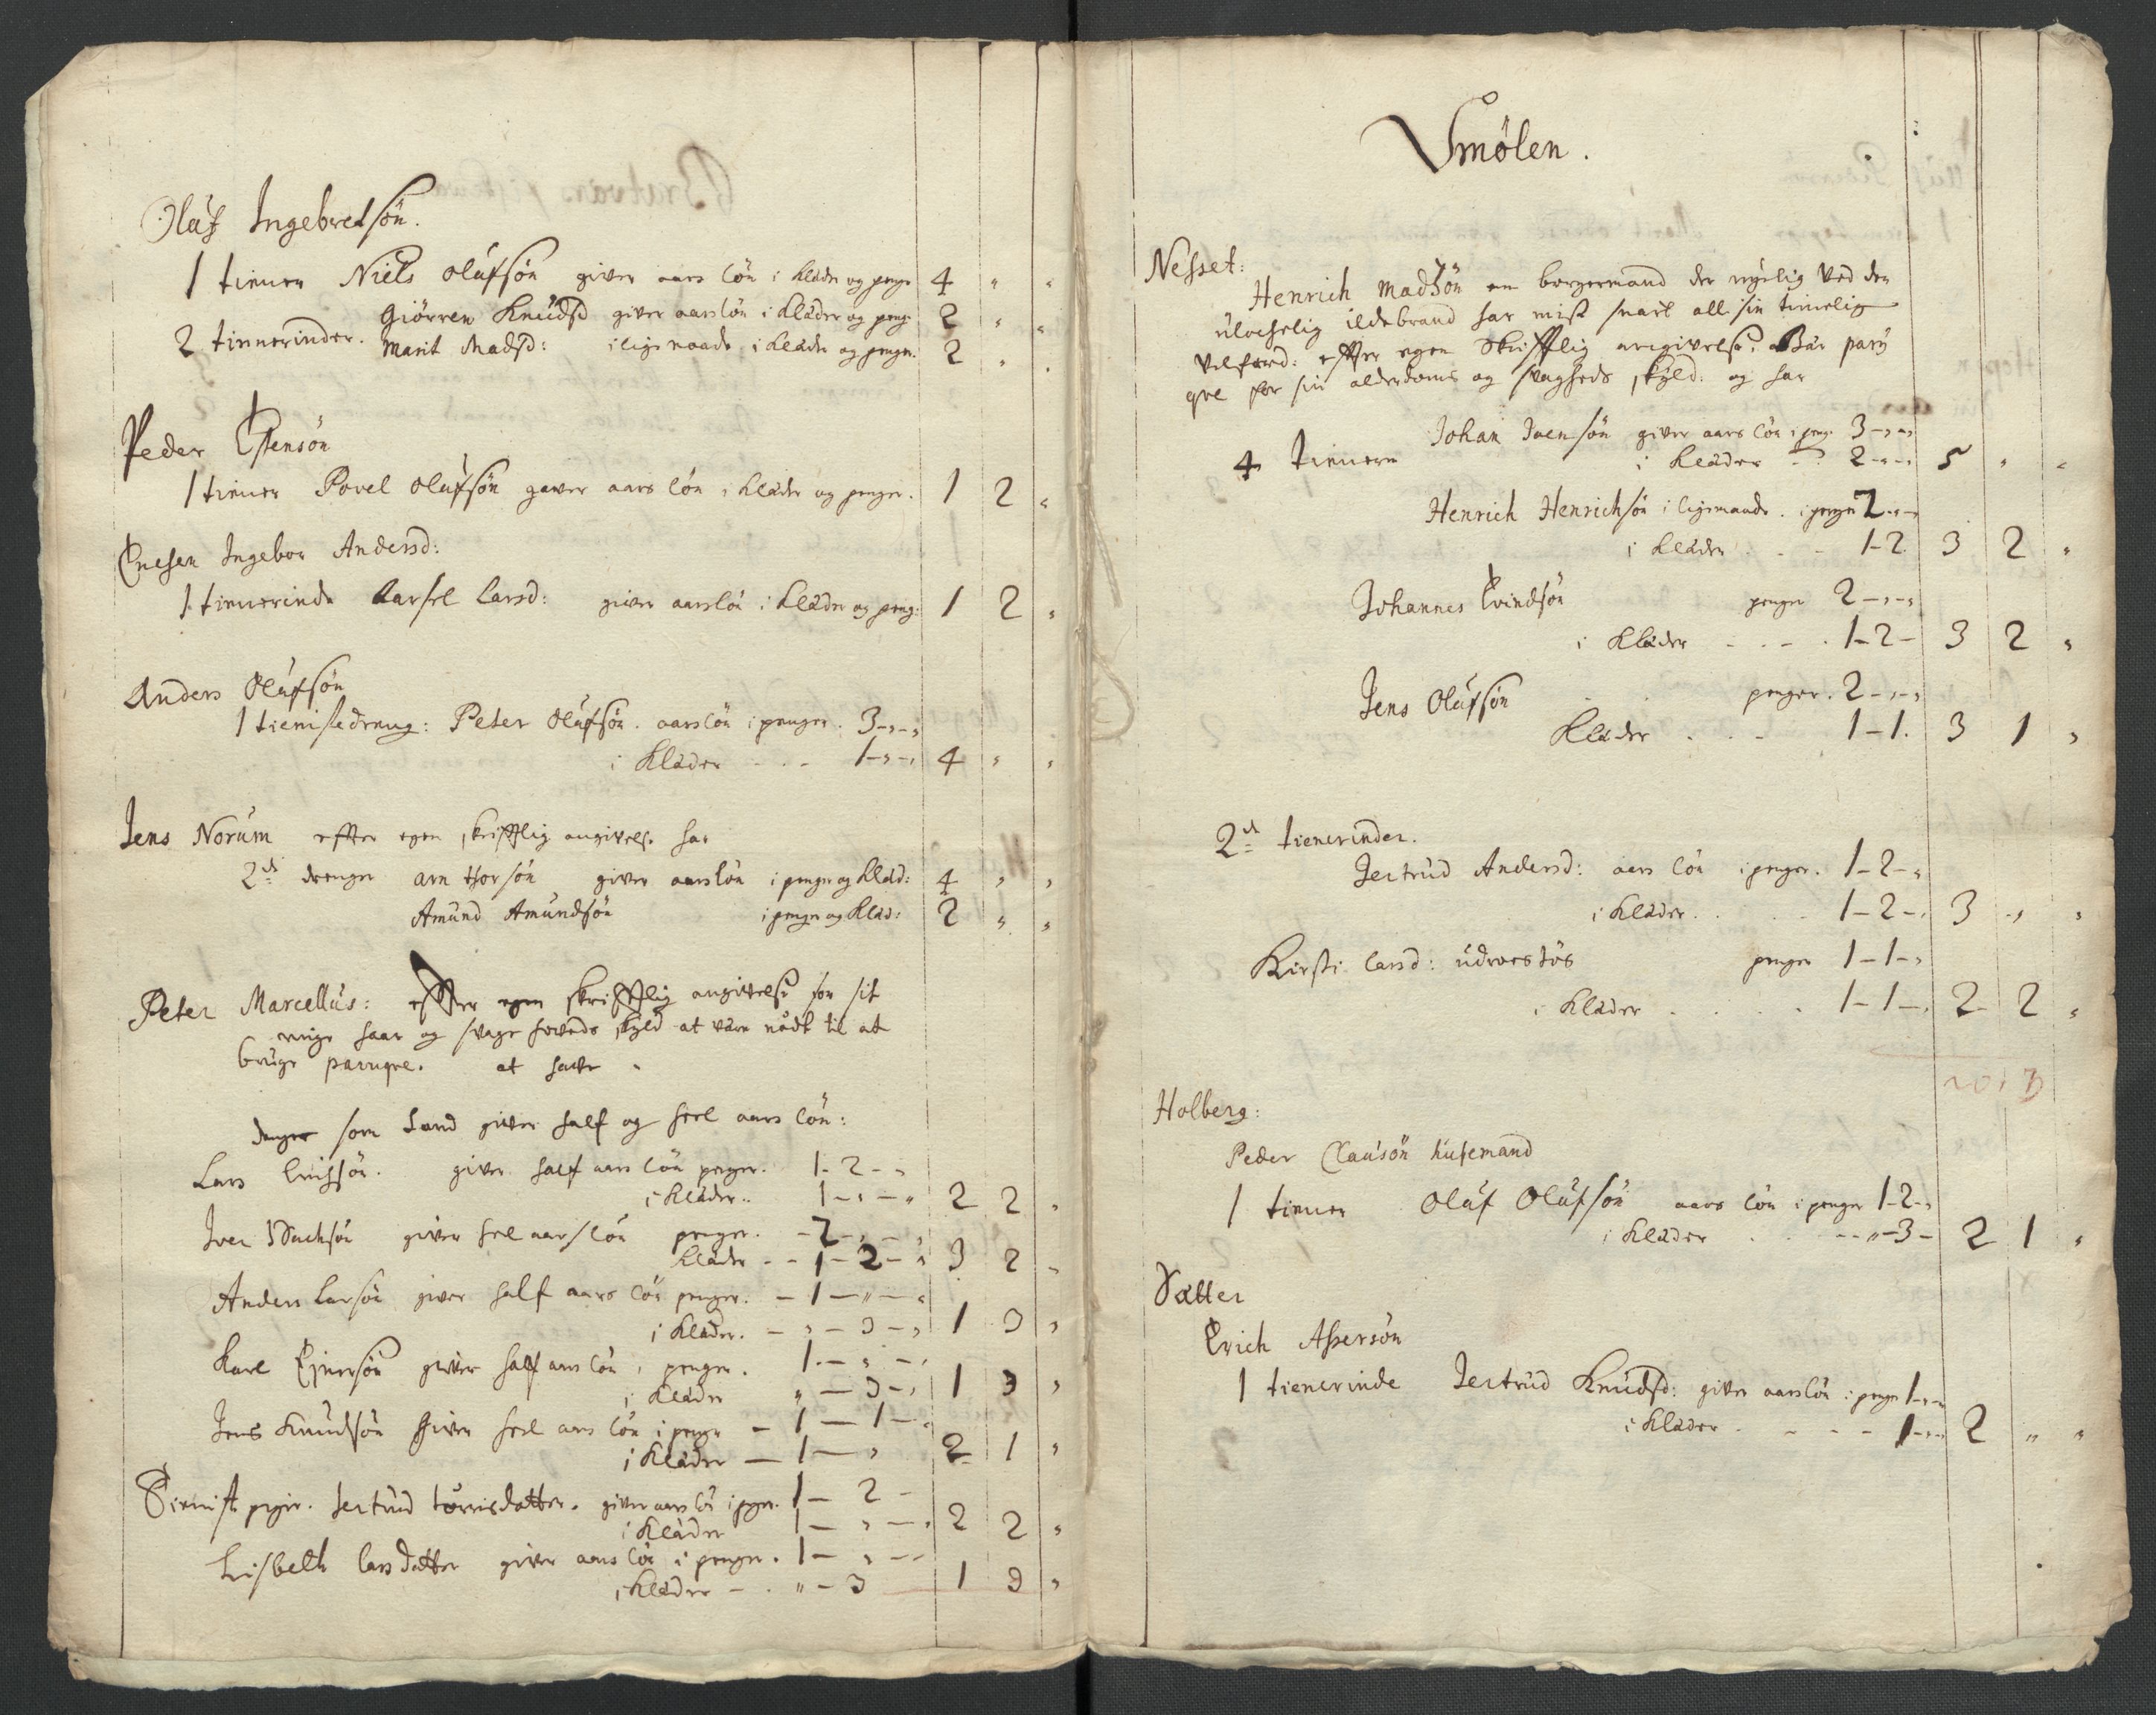 Oluf Ingebretsön.
1 tiener Niels Olufsön giver aars lön i klæder og penge 4 " "
Giörren Knudsd giver aarslön i klæder og peng: 2 " "
2 tiennerinder. Marit Madsd: i lige maade i klæder og penger. 2 " "
Peder Estensön
1 tiener Povel Olufsön gaver aars lön i klæder og penger. 1 2 "
Encken Ingebor Andersd:
1 tienerinde Karsel Larsd: giver aarslön i klæder og peng: 1 2 "
Anders Olufsön
1 tienistedreng: Peter Olufsön. aarslön i penger. 3 - " - "
i klæder - - - 1 - " - " 4 " "
Jens Norum efter egen skrifftlig angivelse har
2de drenge Arn Thorsön giver aarslön i penge og klæd: 4 " "
Amund Amundsön i penge og klæd: 2 " "
Peter Marcellus: effter egen skrifftlig angivelse for sit
ringe haar og svage hoveds skyld at være nödt til at
bruge paruqve. at have
drenge som land giver half og heel aars lön:
Lars Erichsön. giver half aars lön penger. 1 - 2 - "
i klæder.. 1 - " - " 2 2 "
Iver giver heel aars lön penger. - 2 - " - "
klæder - - 1 - 2 - " 3 2 "
Anders Larsön giver half aars lön penger. - 1 - " - "
i klæder. - " - 3 - " 1 3 "
Karl Ejnersön giver half aars lön i penger. 1. - " - "
i klæder " - 3 - " 1 3 "
Jens Knudsön giver heel aars lön i penge - 1 - 1 - "
i klæder - 1 - " 2 1 "
Tienist piger. Jertrud Torrisdatter. giver aars lön i peger. 1 - 2 -
i klæder 1 - " - " 2 2 "
Lisbeth Larsdatter giver aars lön i penger. 1 - " - "
i klæder - . " - 3 1 3 "
Smölen.
Nesset:
Henrich Madsön en borgermand der nylig ved den
ulychelig ildebrand har mist snart all sin timelig
velfærd: effter egen skrifftlig angivelse. Bær pary
qve for sin alderdoms og svagheds skyld: og har
Johan Iversön giver aars lön i peng. 3 - " - "
4 tienern i klæder - - 2 - " - " 5 " "
Henrich Henrichsön i ligemaade. i penger 2 - " - "
i klæder . - - 1 - 2. 3 2 "
Johannes Evindsön penger 2 - " - "
i klæder - . - . 1 - 2 - 3 2 "
Jens Olufsön penger. 2 - " - "
klæder . . - 1 - 1. 3 1 "
2de tienerinder.
Jertrud Andersd: aars lön i penger. 1 - 2 - "
i klæder. . . - 1 - 2 - " 3 - " "
Kirsti Larsd: penger 1 - 1 - "
i klæder . . . . 1 - 1 - " 2 2 "
Holberg:
Peder Clausön husemand
1 tiener Oluf Olufsön aars lön i penger 1 - 2 - "
i klæder . . - - " - 3 - 2 1 "
Sætter
Erich Assersön
1 tienerinde Jertrud Knudsd: giver aarslön i penge 1 - " - "
i klæder . - - - 1 - " - " 2 " "